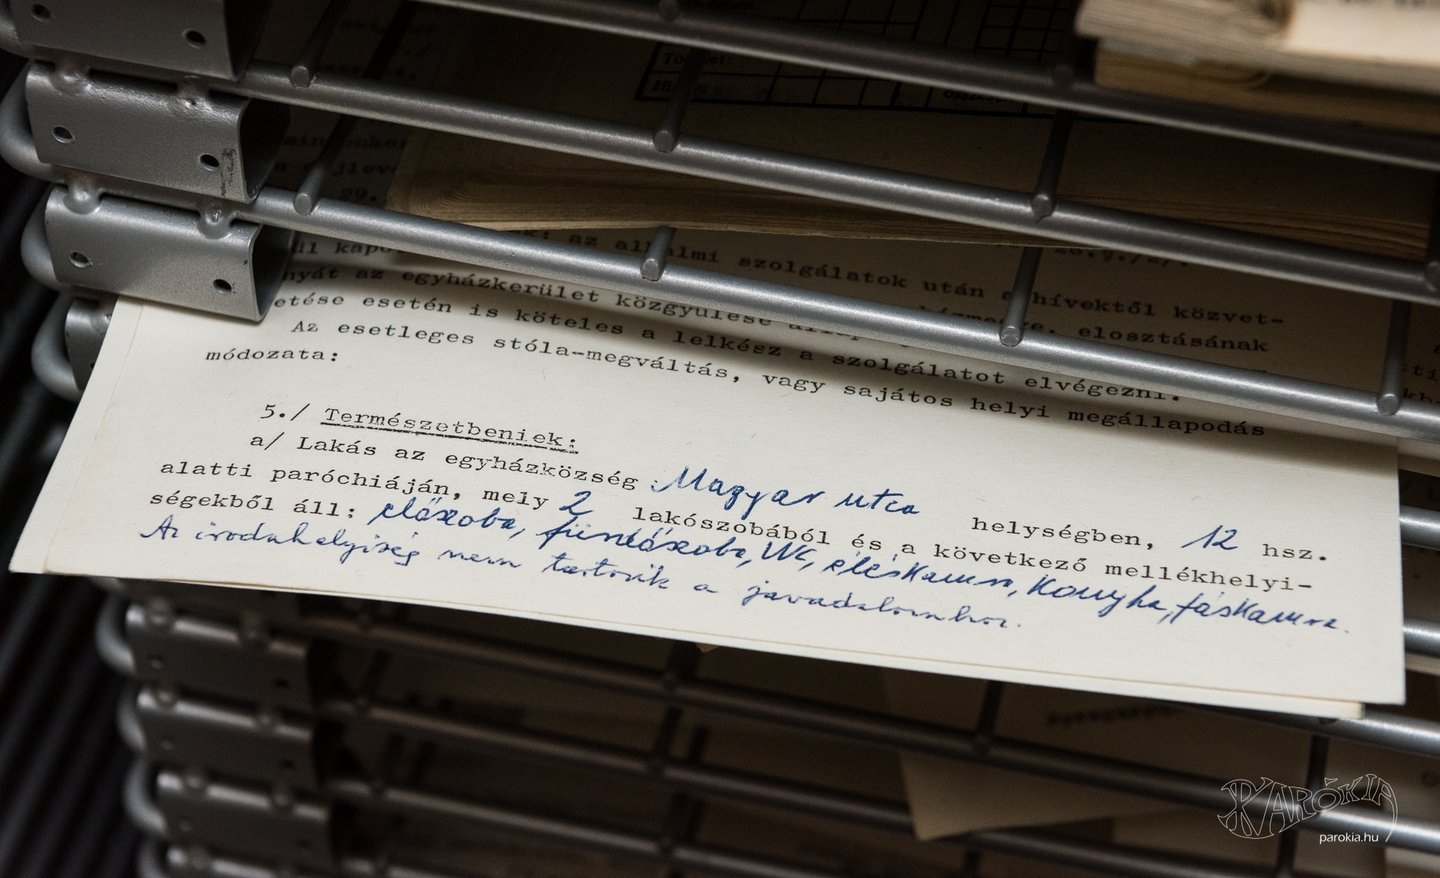 az alkalmi szolgálatok után a hívektől közvet-
nyát az egyházkerület közgyűlése elosztásának
etése esetén is köteles a lelkész a szolgálatot elvégezni.
Az esetleges stóla-megváltás, vagy sajátos helyi megállapodás
módozata:
5./ Természetbeniek:
a/ Lakás az egyházközség Magyar utca helységben, 12 hsz.
alatti paróchiáján, mely 2 lakószobából és a következő mellékhelyi-
ségekből áll: előszoba, fürdőszoba, WC, éléskamra, konyha, fáskamra.
Az irodahelyiség nem tartozik a javadalomhoz.
PARÓKIA
parokia.hu